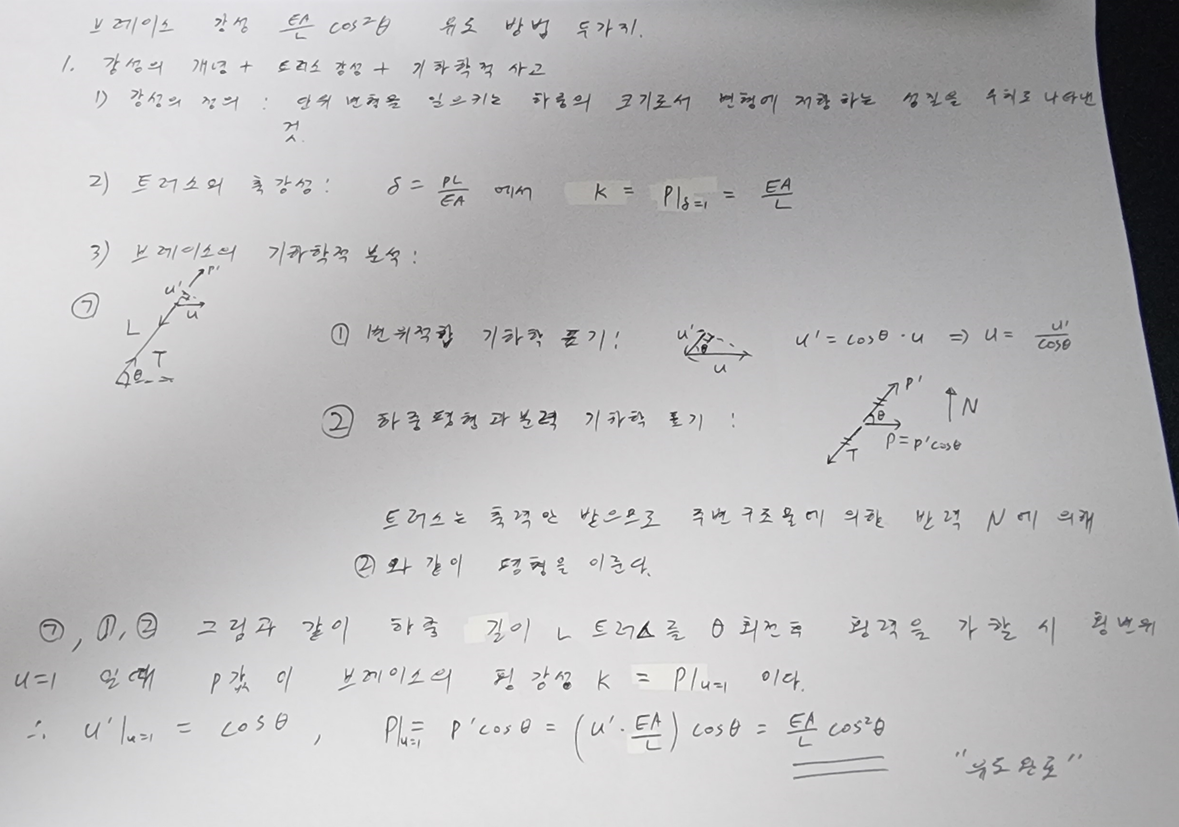 브레이스 강성 EA/L cos²θ 유도 방법 두가지.
1. 강성의 개념 + 트러스 강성 + 기하학적 사고
1) 강성의 정의 : 단위 변형을 일으키는 하중의 크기로서 변형에 저항하는 성질을 수치로 나타낸
것.
2) 트러스의 축강성 : δ = PL/EA 에서 K = P|δ=1 = EA/L
3) 브레이스의 기하학적 분석 :
㉠ P' u' u L T θ
① 변위적합 기하학 표기 : u' θ u u' = cosθ · u ⇒ u = u'/cosθ
② 하중평형과 분력 기하학 표기 : P' θ T P = P'cosθ ↑N
트러스는 축력만 받으므로 주변구조물에 의한 반력 N에 의해
②와 같이 평형을 이룬다.
㉠, ①, ② 그림과 같이 하중 길이 L 트러스를 θ 회전후 횡력을 가할 시 횡변위
u=1 일때 P값이 브레이스의 횡강성 K = P|u=1 이다.
∴ u'|u=1 = cosθ , P|u=1 = P'cosθ = (u' · EA/L) cosθ = EA/L cos²θ
"유도완료"